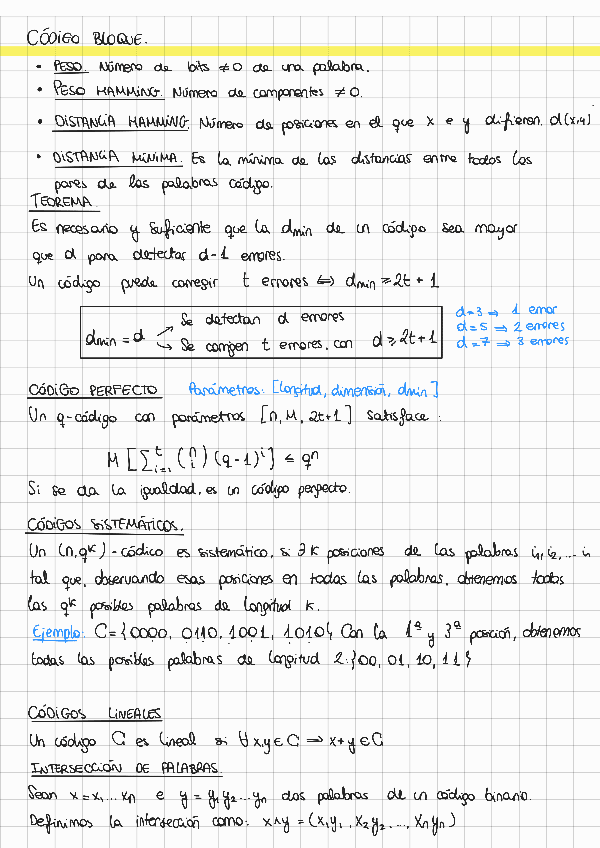 CÓDIGO BLOQUE.
• PESO. Número de bits ≠0 de una palabra.
• PESO HAMMING. Número de componentes ≠ 0.
• DISTANCIA HAMMING. Número de posiciones en el que x e y difieren. d(x,y)
• DISTANCIA MÍNIMA. Es la mínima de las distancias entre todos los
pares de las palabras código.
TEOREMA.
Es necesario y suficiente que la dmin de un código sea mayor
que d para detectar d-1 errores.
Un código puede corregir t errores ⟺ dmin ≥ 2t + 1
dmin = d → Se detectan d errores
↪ Se corrigen t errores, con d ≥ 2t+1
d=3 ⇒ 1 error
d=5 ⇒ 2 errores
d=7 ⇒ 3 errores
CÓDIGO PERFECTO Parámetros: [longitud, dimensión, dmin]
Un q-código con parámetros [n, M, 2t+1] satisface:
M [∑_{i=1}^{t} (n i) (q-1)^i] ≤ q^n
Si se da la igualdad, es un código perfecto.
CÓDIGOS SISTEMÁTICOS.
Un (n,q^k)-código es sistemático, si ∃ k posiciones de las palabras i₁, i₂, ... i
tal que, observando esas posiciones en todas las palabras, obtenemos todas
las q^k posibles palabras de longitud k.
Ejemplo: C={0000, 0110, 1001, 1010} Con la 1ª y 3ª posición, obtenemos
todas las posibles palabras de longitud 2:{00, 01, 10, 11}
CÓDIGOS LINEALES
Un código C es lineal si ∀x,y∈C ⇒ x+y∈C
INTERSECCIÓN DE PALABRAS.
Sean x=x₁...xn e y = y₁y₂...yn dos palabras de un código binario.
Definimos la intersección como: x∧y = (x₁y₁, x₂y₂, ..., xnyn)